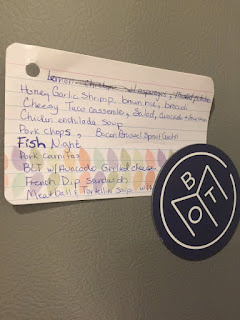 Lemon
Honey Garlic Shrimp, brown rice, broccoli
Cheesy Taco casserole, Salad, avocado +
Chicken enchilada soup
Pork chops, Bacon Brussel Sprout Gratin
Fish Night
Pork Carnitas
BLT w/ Avocado Grilled cheese
French Dip sandwich
Meatball & Tortellini Soup
B
O T